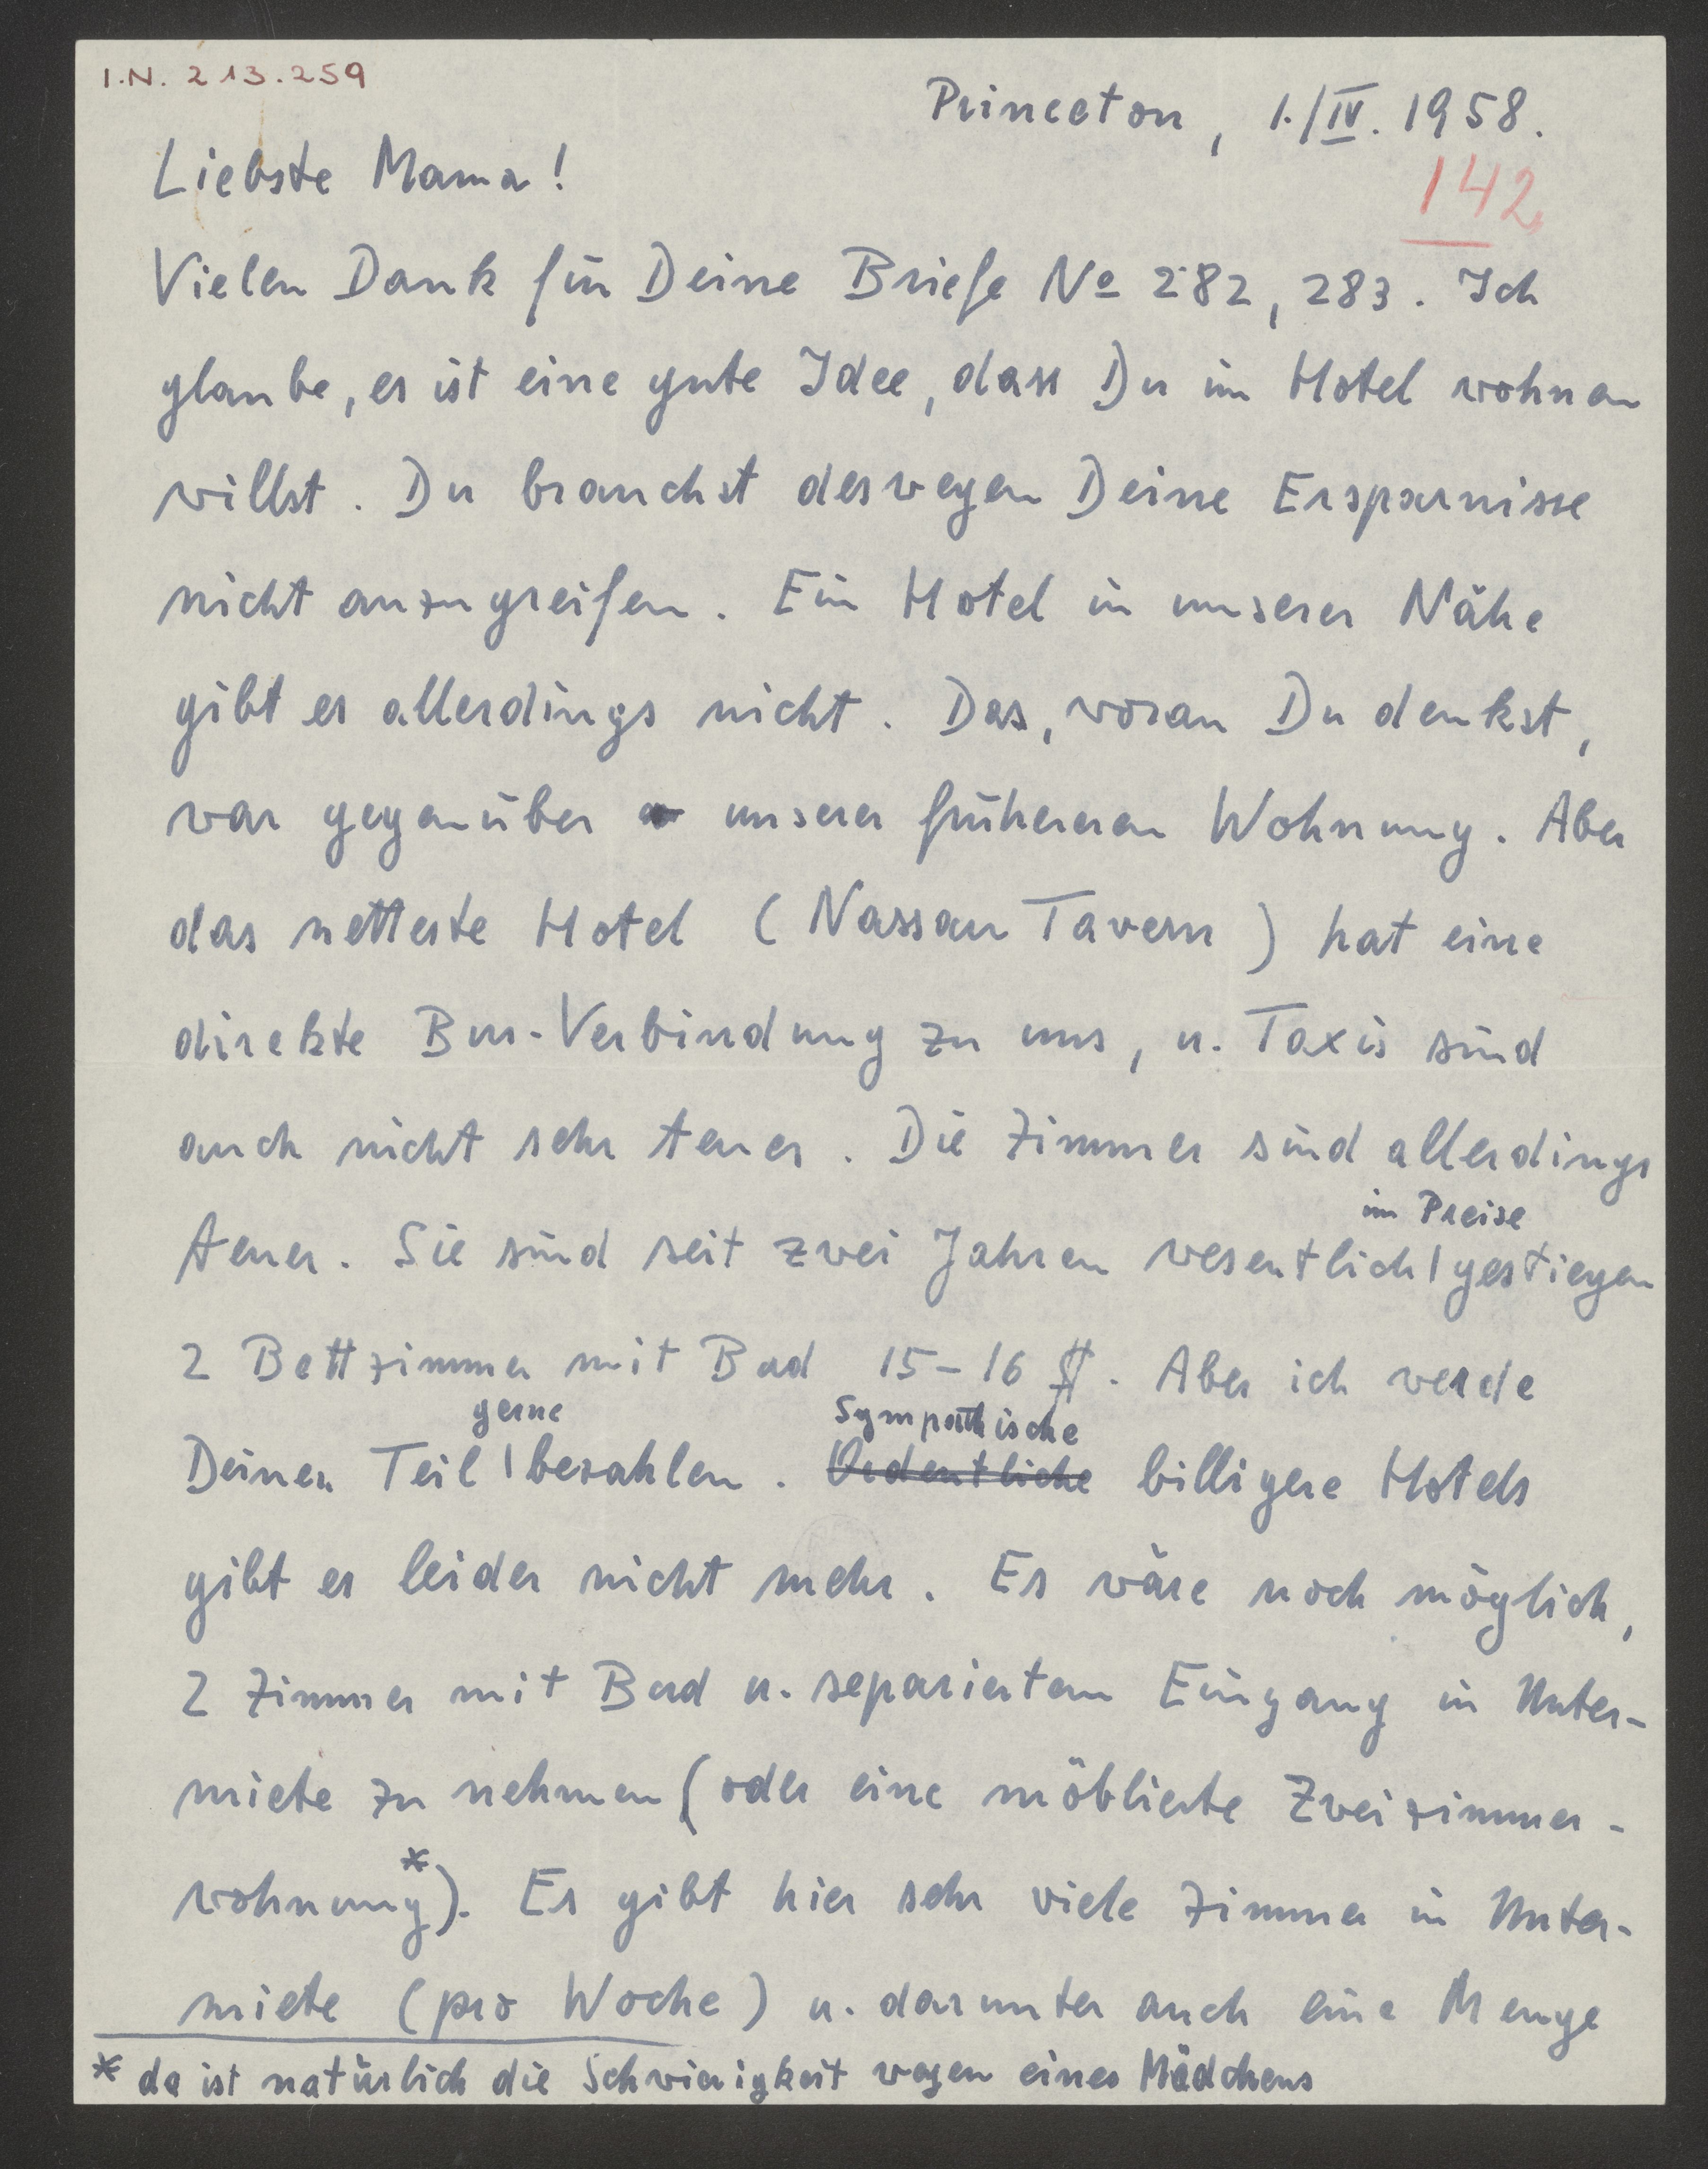 I.N. 213.259
Princeton, 1./IV. 1958.
142
Liebste Mama!
Vielen Dank für Deine Briefe No 282, 283. Ich
glaube, es ist eine gute Idee, dass Du im Hotel wohnen
willst. Du brauchst deswegen Deine Ersparnisse
nicht anzugreifen. Ein Hotel in unserer Nähe
gibt es allerdings nicht. Das, woran Du denkst,
war gegenüber unserer früheren Wohnung. Aber
das netteste Hotel (Nassau Tavern) hat eine
direkte Bus-Verbindung zu uns, u. Taxis sind
auch nicht sehr teuer. Die Zimmer sind allerdings
im Preise
teuer. Sie sind seit zwei Jahren wesentlich | gestiegen
2 Bettzimmer mit Bad 15-16 $. Aber ich werde
gerne Sympathische
Deinen Teil | bezahlen. Ordentliche billigere Hotels
gibt es leider nicht mehr. Es wäre noch möglich,
2 Zimmer mit Bad u. separiertem Eingang in Unter-
miete zu nehmen (oder eine möblierte Zweizimmer-
wohnung*). Es gibt hier sehr viele Zimmer in Unter-
miete (pro Woche) u. darunter auch eine Menge
* da ist natürlich die Schwierigkeit wegen eines Mädchens